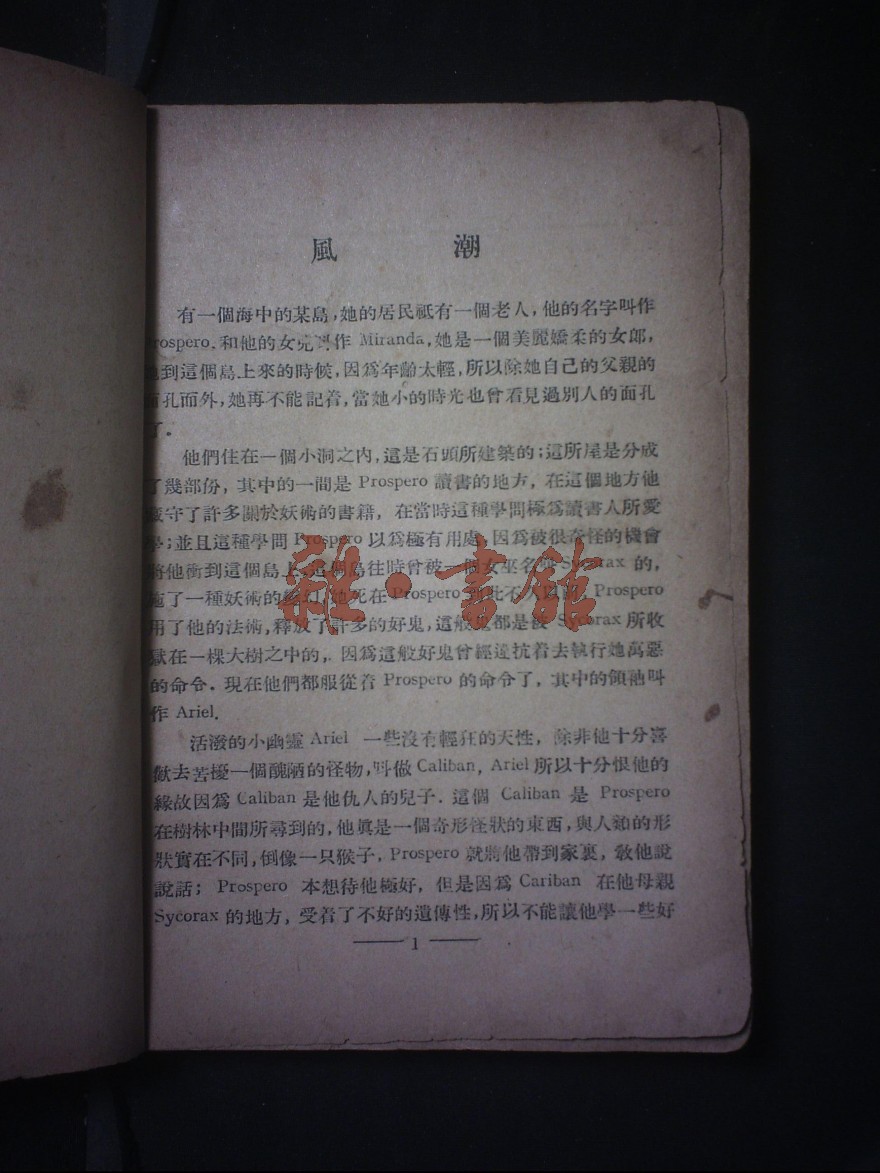 風潮
有一個海中的某島,她的居民祇有一個老人,他的名字叫作
rospero.和他的女兒叫作 Miranda,她是一個美麗嬌柔的女郎,
到這個島上來的時候,因爲年齡太輕,所以除她自己的父親的
面孔而外,她再不能記着,當她小的時光也曾看見過別人的面孔
了。
他們住在一個小洞之内,這是石頭所建築的;這所屋是分成
了幾部份,其中的一間是 Prospero 讀書的地方,在這個地方他
守了許多關於妖術的書籍,在當時這種學問極爲讀書人所愛
學;並且這種學問 Prospero 以爲極有用處,因爲被很奇怪的機會
將他衝到這個島上,這個島往時曾被一個女巫名叫 Sycorax 的,
施了一種妖術的,她死在 Prospero 到此不久以前,Prospero
用了他的法術,釋放了許多的好鬼,這般鬼都是被 Sycorax 所收
獄在一棵大樹之中的,因爲這般好鬼曾經違抗着去執行她萬惡
的命令.現在他們都服從着 Prospero 的命令了,其中的領袖叫
作 Ariel.
活潑的小幽靈 Ariel 一些沒有輕狂的天性,除非他十分喜
歡去苦擾一個醜陋的怪物,叫做 Caliban, Ariel 所以十分恨他的
緣故因爲 Caliban 是他仇人的兒子.這個 Caliban 是 Prospero
在樹林中間所尋到的,他眞是一個奇形怪狀的東西,與人類的形
狀實在不同,倒像一只猴子,Prospero 就將他帶到家裏,敎他說
說話;Prospero 本想待他極好,但是因爲 Cariban 在他母親
Sycorax 的地方,受着了不好的遺傳性,所以不能讓他學一些好
1
雜·書館